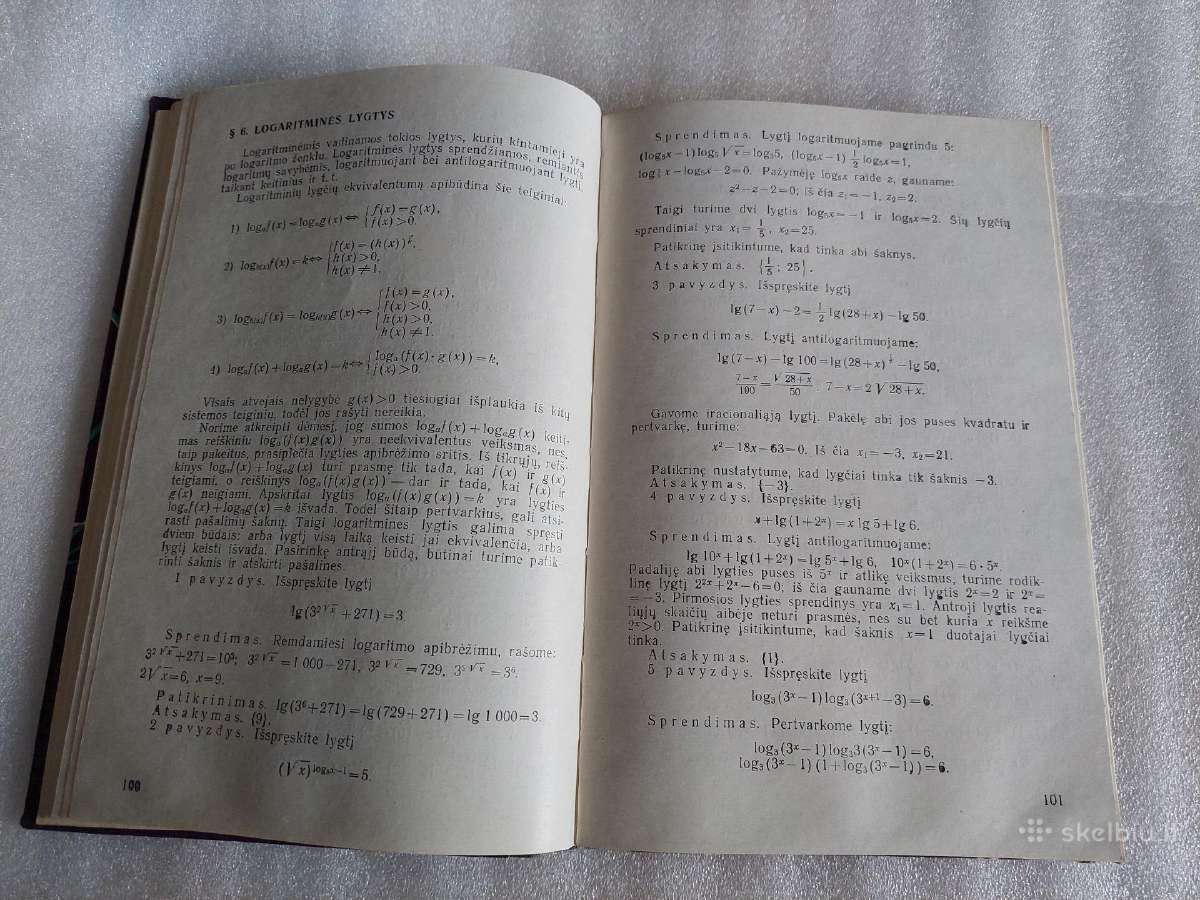 § 6. LOGARITMINĖS LYGTYS
Logaritminėmis vadinamos tokios lygtys, kurių kintamieji yra
po logaritmo ženklu. Logaritminės lygtys sprendžiamos, remiantis
logaritmų savybėmis, logaritmuojant bei antilogaritmuojant lygtį,
taikant keitinius ir t. t.
Logaritminių lygčių ekvivalentumą apibūdina šie teiginiai:
1) logₐf(x)=logₐg(x)⇔ { f(x)=g(x), f(x)>0.
2) logₕ₍ₓ₎f(x)=k⇔ { f(x)=(h(x))ᵏ, h(x)>0, h(x)≠1.
3) logₕ₍ₓ₎f(x)=logₕ₍ₓ₎g(x)⇔ { f(x)=g(x), f(x)>0, h(x)>0, h(x)≠1.
4) logₐf(x)+logₐg(x)=k⇔ { logₐ(f(x)·g(x))=k, f(x)>0.
Visais atvejais nelygybė g(x)>0 tiesiogiai išplaukia iš kitų
sistemos teiginių, todėl jos rašyti nereikia.
Norime atkreipti dėmesį, jog sumos logₐf(x)+logₐg(x) keitimas
mas reiškiniu logₐ(f(x)g(x)) yra neekvivalentus veiksmas, nes,
taip pakeitus, prasiplečia lygties apibrėžimo sritis. Iš tikrųjų, reiš-
kinys logₐf(x)+logₐg(x) turi prasmę tik tada, kai f(x) ir g(x)
teigiami, o reiškinys logₐ(f(x)g(x)) — dar ir tada, kai f(x) ir
g(x) neigiami. Apskritai lygtis logₐ(f(x)g(x))=k yra lygties
logₐf(x)+logₐg(x)=k išvada. Todėl šitaip pertvarkius, gali atsi-
rasti pašalinių šaknų. Taigi logaritmines lygtis galima spręsti
dviem būdais: arba lygtį visą laiką keisti jai ekvivalenčia, arba
lygtį keisti išvada. Pasirinkę antrąjį būdą, būtinai turime patik-
rinti šaknis ir atskirti pašalines.
1 pavyzdys. Išspręskite lygtį
lg(3^(2√x)+271)=3.
Sprendimas. Remdamiesi logaritmo apibrėžimu, rašome:
3^(2√x)+271=10³; 3^(2√x)=1 000−271, 3^(2√x)=729, 3^(2√x)=3⁶.
2√x=6, x=9.
Patikrinimas. lg(3⁶+271)=lg(729+271)=lg 1 000=3.
Atsakymas. {9}.
2 pavyzdys. Išspręskite lygtį
(√x)^(log₅x−1)=5.
100
Sprendimas. Lygtį logaritmuojame pagrindu 5:
(log₅x−1)log₅√x=log₅5, (log₅x−1) 1/2 log₅x=1,
log₅²x−log₅x−2=0. Pažymėję log₅x raide z, gauname:
z²−z−2=0; iš čia z₁=−1, z₂=2.
Taigi turime dvi lygtis log₅x=−1 ir log₅x=2. Šių lygčių
sprendiniai yra x₁=1/5, x₂=25.
Patikrinę įsitikintume, kad tinka abi šaknys.
Atsakymas. {1/5; 25}.
3 pavyzdys. Išspręskite lygtį
lg(7−x)−2=1/2 lg(28+x)−lg 50.
Sprendimas. Lygtį antilogaritmuojame:
lg(7−x)−lg 100=lg(28+x)^(1/2)−lg 50,
(7−x)/100=√(28+x)/50, 7−x=2√(28+x).
Gavome iracionaliąją lygtį. Pakėlę abi jos puses kvadratu ir
pertvarkę, turime:
x²−18x−63=0. Iš čia x₁=−3, x₂=21.
Patikrinę nustatytume, kad lygčiai tinka tik šaknis −3.
Atsakymas. {−3}.
4 pavyzdys. Išspręskite lygtį
x+lg(1+2ˣ)=x lg 5+lg 6.
Sprendimas. Lygtį antilogaritmuojame:
lg 10ˣ+lg(1+2ˣ)=lg 5ˣ+lg 6, 10ˣ(1+2ˣ)=6·5ˣ.
Padaliję abi lygties puses iš 5ˣ ir atlikę veiksmus, turime rodik-
linę lygtį 2²ˣ+2ˣ−6=0; iš čia gauname dvi lygtis 2ˣ=2 ir 2ˣ=
=−3. Pirmosios lygties sprendinys yra x₁=1. Antroji lygtis rea-
liųjų skaičių aibėje neturi prasmės, nes su bet kuria x reikšme
2ˣ>0. Patikrinę įsitikintume, kad šaknis x=1 duotajai lygčiai
tinka.
Atsakymas. {1}.
5 pavyzdys. Išspręskite lygtį
log₃(3ˣ−1)log₃(3ˣ⁺¹−3)=6.
Sprendimas. Pertvarkome lygtį:
log₃(3ˣ−1)log₃3(3ˣ−1)=6,
log₃(3ˣ−1)(1+log₃(3ˣ−1))=6.
101
skelbiu.lt